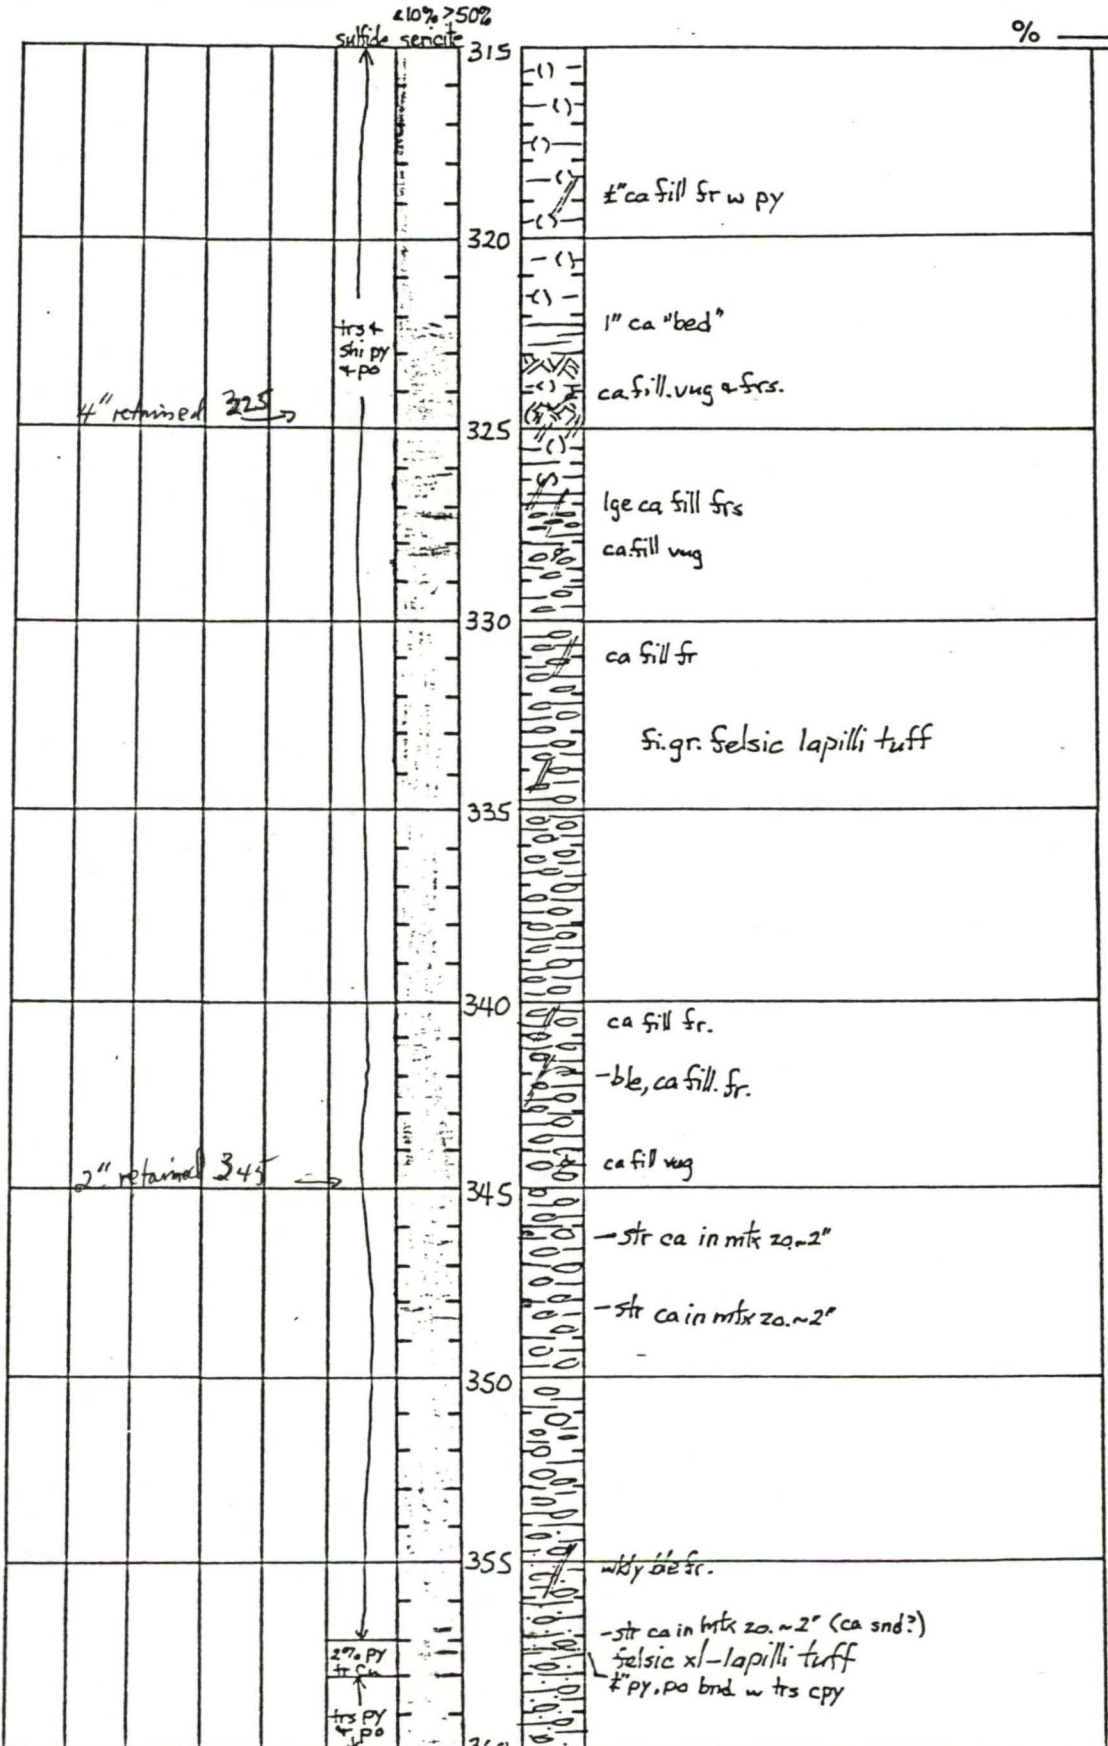 <10% >50%
sulfide sericite
%
315
¼" ca fill fr w py
320
1" ca "bed"
trs &
shi py
& po
ca fill. vug & frs.
4" retained 325
325
lge ca fill frs
ca fill vug
330
ca fill fr
fi.gr. felsic lapilli tuff
335
340
ca fill fr.
-ble, ca fill. fr.
ca fill vug
2" retained 345
345
-str ca in mtx zo. ~2"
-str ca in mtx zo. ~2"
350
355
wkly ble fr.
-str ca in mtx zo. ~2" (ca snd?)
felsic xl-lapilli tuff
¼" py, po bnd w trs cpy
2% py
tr Cu
trs py
& po